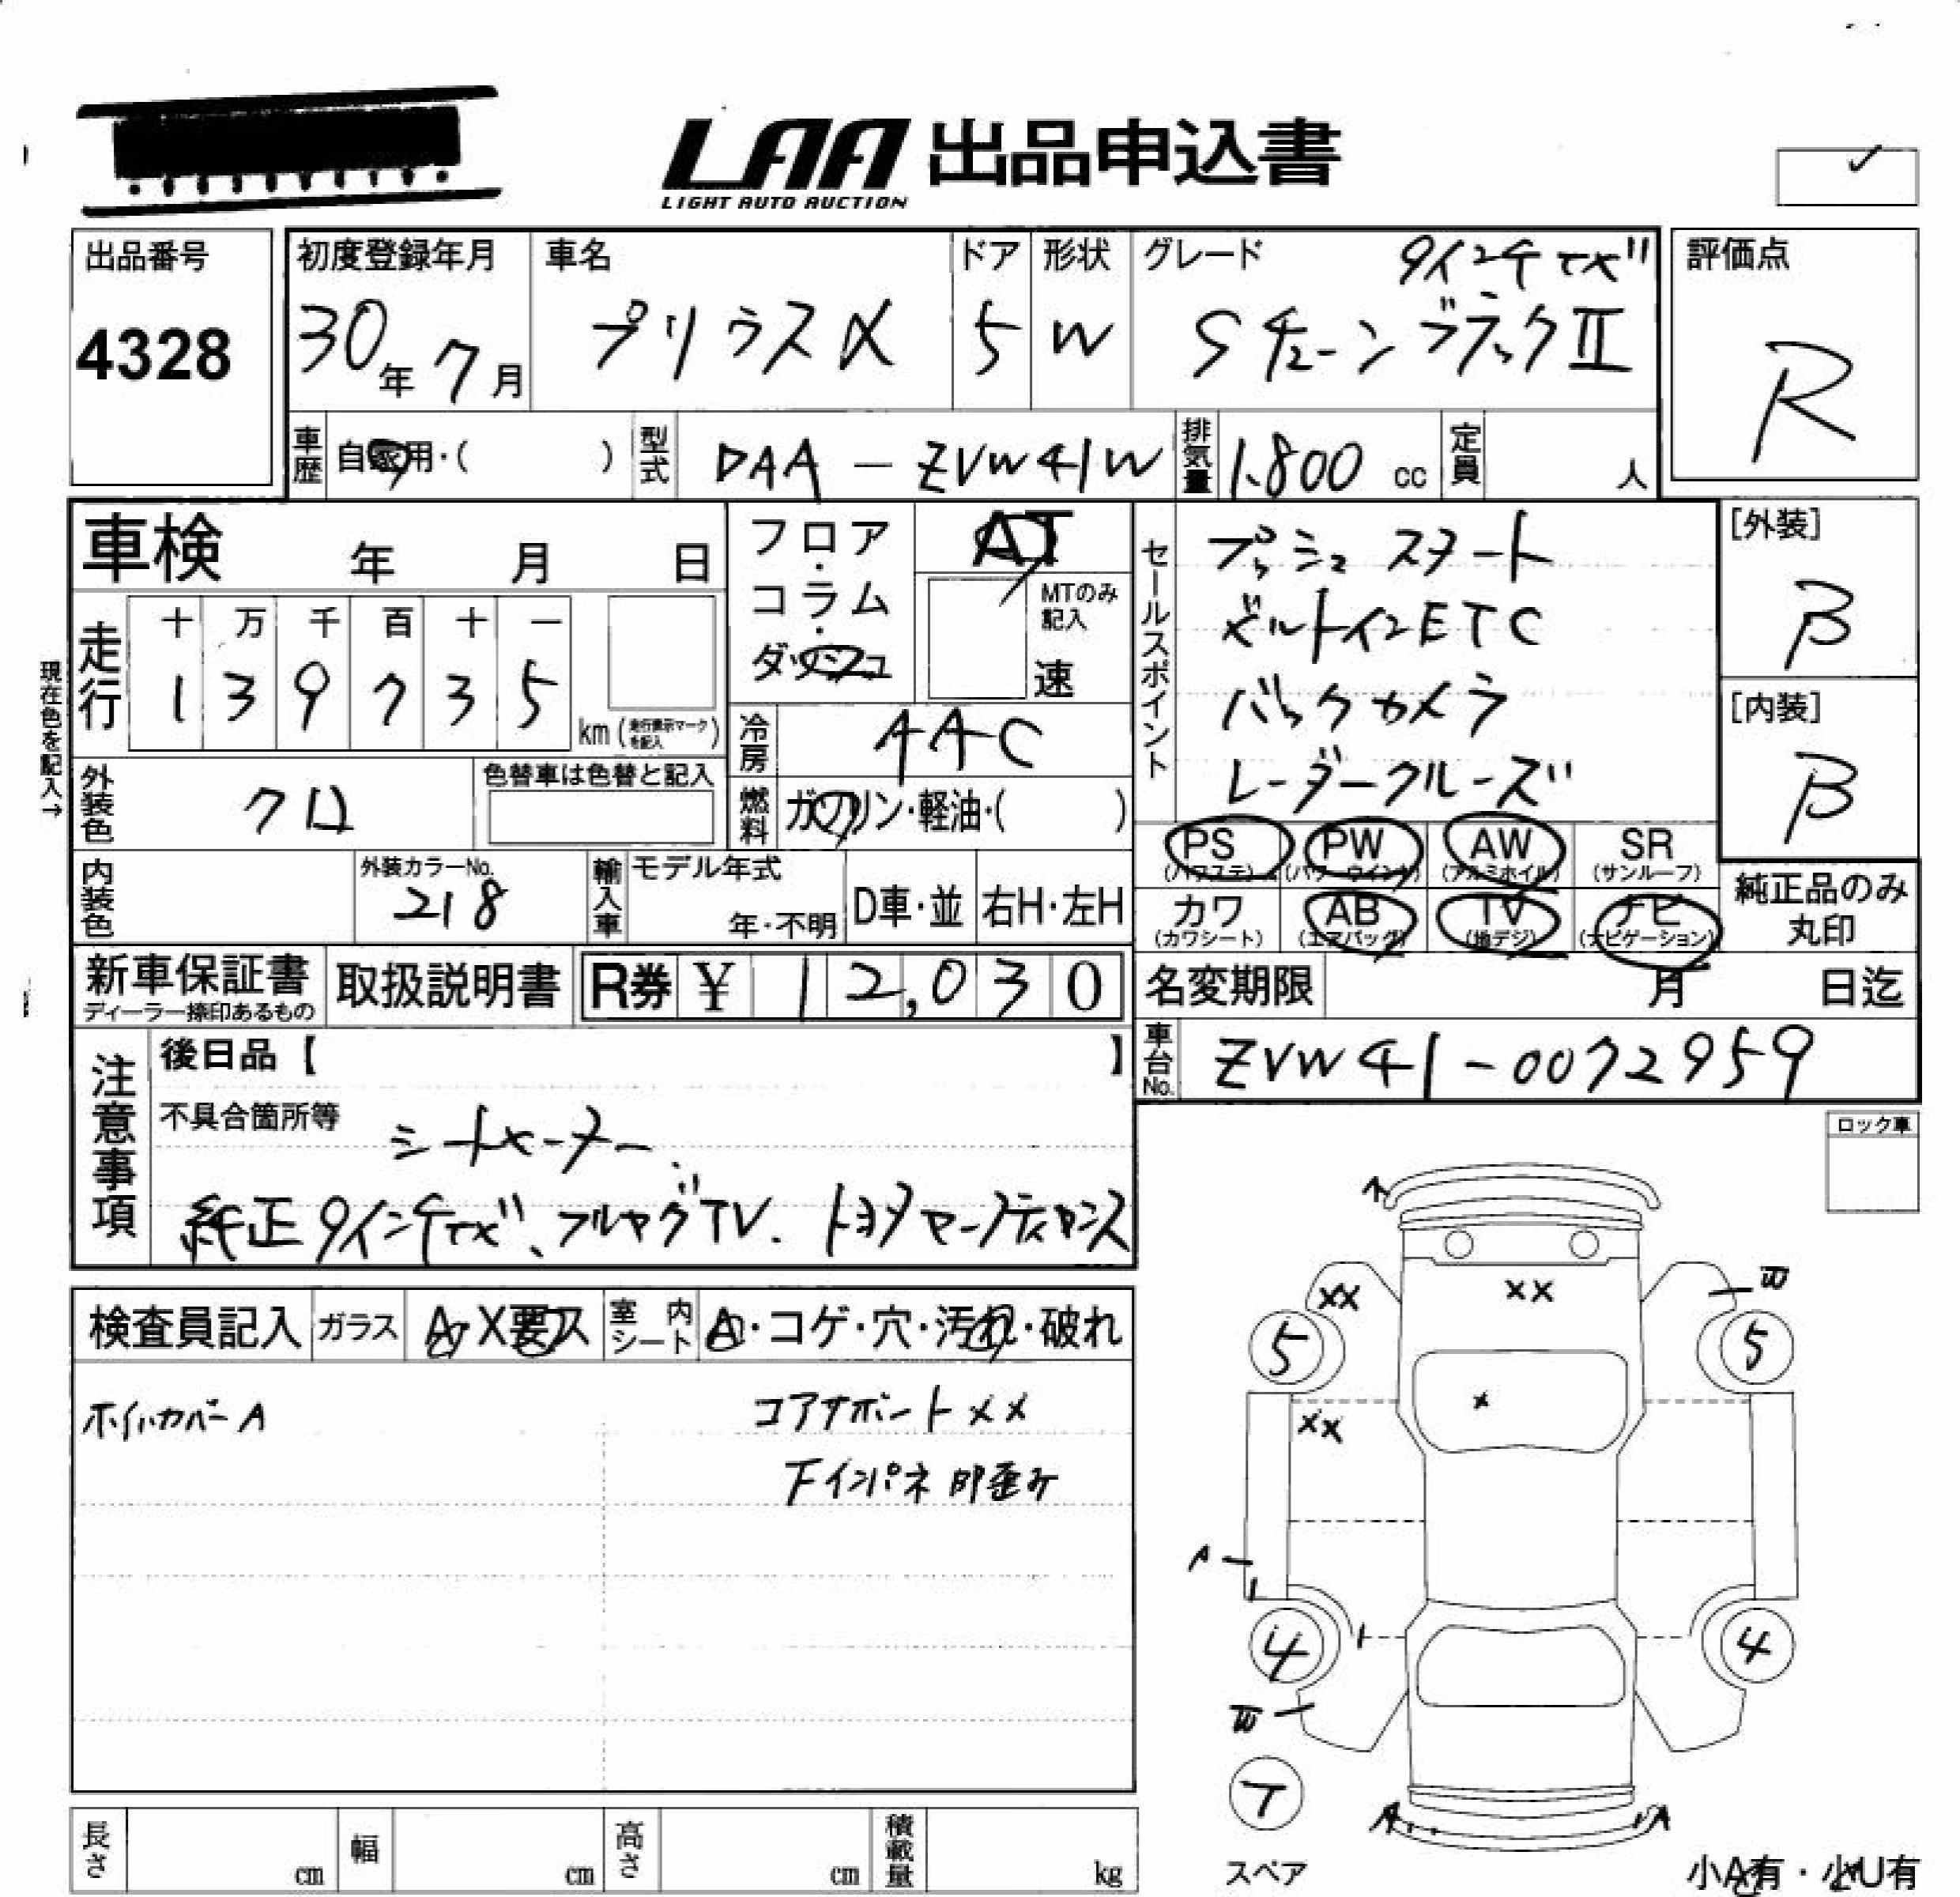 LAA 出品申込書
LIGHT AUTO AUCTION
出品番号
4328
初度登録年月
30年7月
車名
プリウスα
ドア
5
形状
W
グレード
9インチナビ
SチューンブラックⅡ
評価点
R
車歴
自家用・( )
型式
DAA-ZVW41W
排気量
1.800 cc
定員
人
車検 年 月 日
フロア・コラム・ダッシュ
AT
MTのみ記入
速
セールスポイント
プッシュスタート
ビルトインETC
バックカメラ
レーダークルーズ
[外装]
B
[内装]
B
現在色を記入→
走行
十 万 千 百 十 一
1 3 9 7 3 5
km (走行表示マークを記入)
冷房
AAC
外装色
クロ
色替車は色替と記入
燃料
ガソリン・軽油・( )
PS (パワステ) PW (パワーウインド) AW (アルミホイル) SR (サンルーフ)
カワ (カワシート) AB (エアバッグ) TV (地デジ) ナビ (ナビゲーション)
純正品のみ丸印
内装色
外装カラーNo.
218
輸入車
モデル年式
年・不明
D車・並
右H・左H
新車保証書
ディーラー捺印あるもの
取扱説明書
R券 ¥ 12,030
名変期限 月 日迄
車台No.
ZVW41-0072959
注意事項
後日品【 】
不具合箇所等
シートヒーター
純正9インチナビ、フルセグTV.
ロック車
検査員記入
ガラス
A・X要ス
室内シート
A・コゲ・穴・汚れ・破れ
ホイルカバーA
コアサポートXX
下インパネ 歪み
A
XX
XX
W
5
5
X
XX
A
4
4
W
T
スペア
A
A
小A有・小U有
長さ cm
幅 cm
高さ cm
積載量 kg